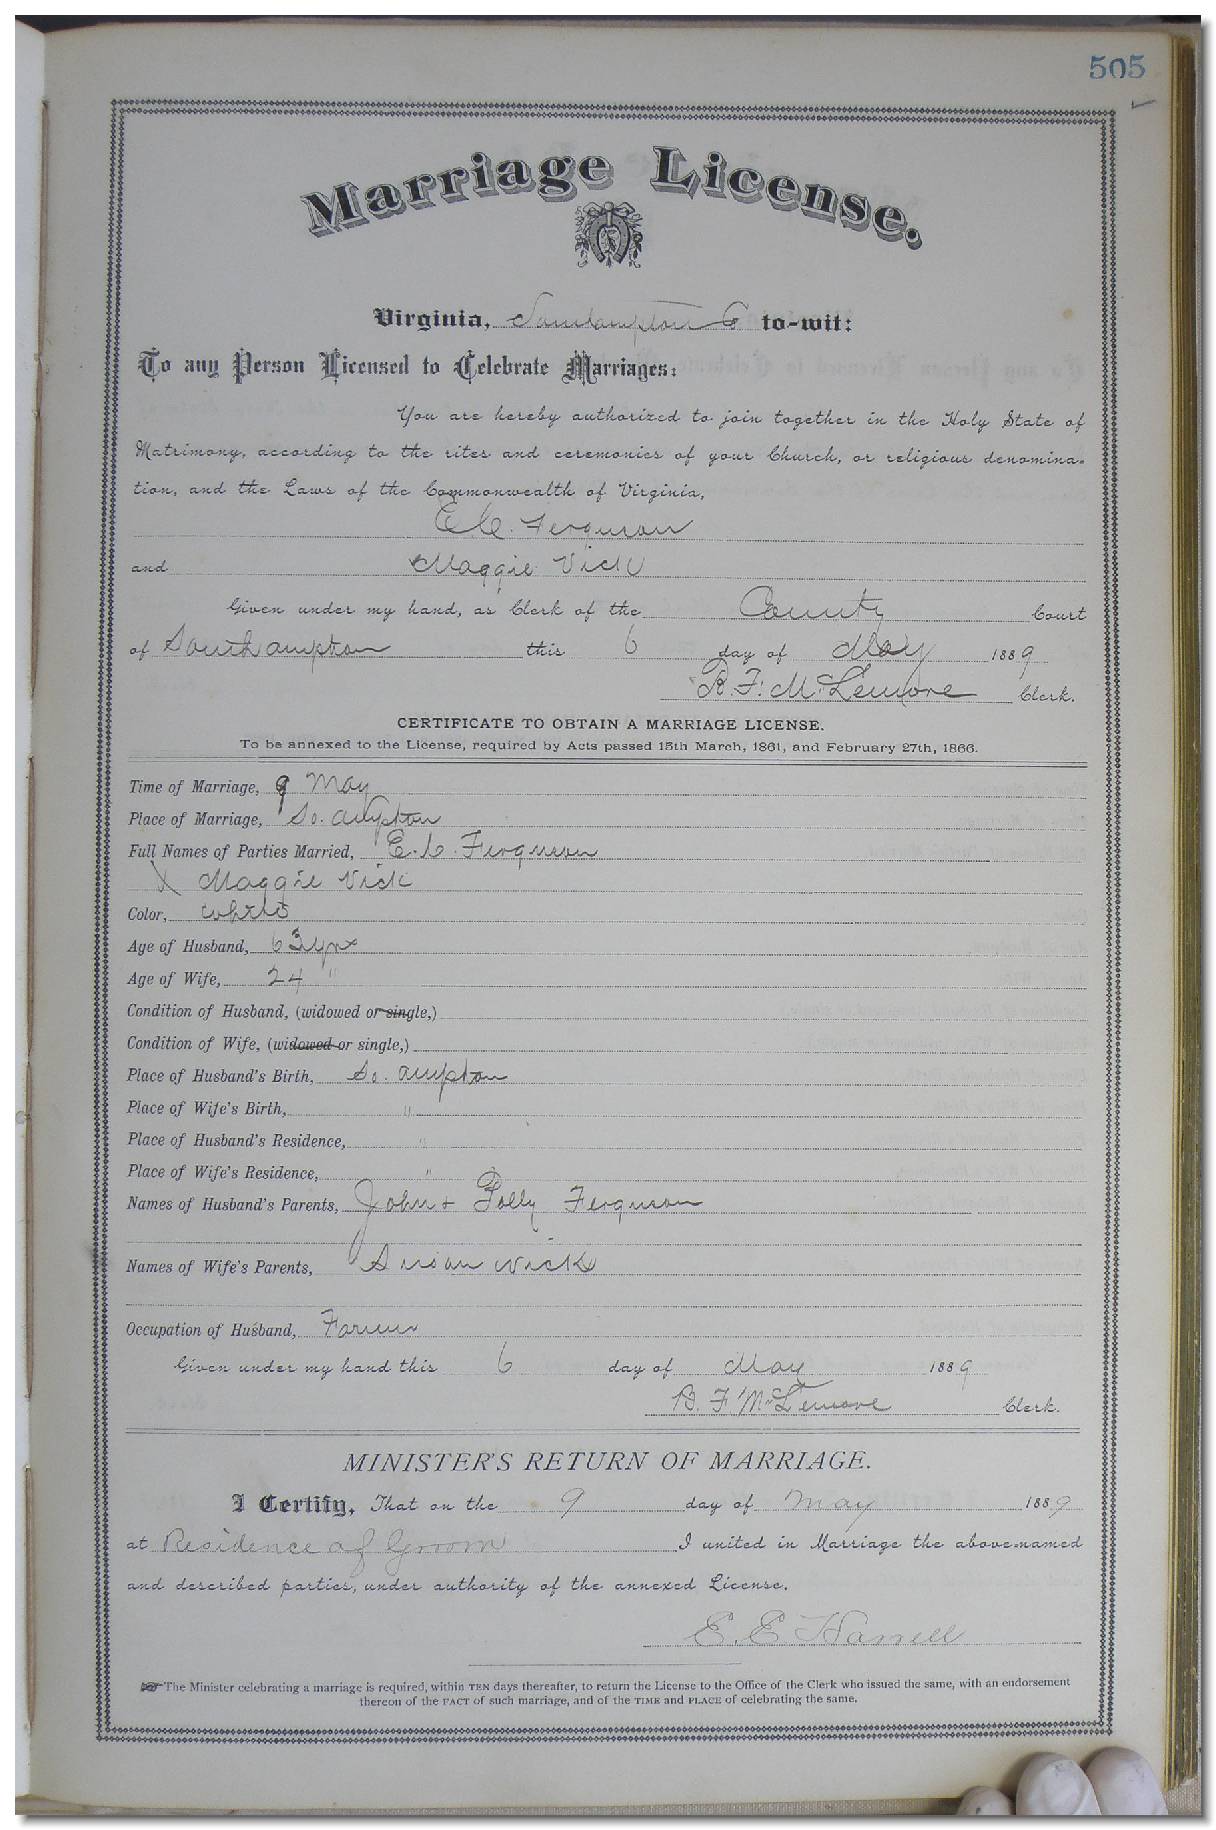 505
Marriage License.
Virginia, Southampton Co to-wit:
To any Person Licensed to Celebrate Marriages:
You are hereby authorized to join together in the Holy State of
Matrimony, according to the rites and ceremonies of your Church, or religious denomina-
tion, and the Laws of the Commonwealth of Virginia,
E. C. Ferguson
and Maggie Vick
Given under my hand, as Clerk of the County Court
of Southampton this 6 day of May 1889
R. F. McLemore Clerk.
CERTIFICATE TO OBTAIN A MARRIAGE LICENSE.
To be annexed to the License, required by Acts passed 15th March, 1861, and February 27th, 1866.
Time of Marriage, 9 May
Place of Marriage, So. ampton
Full Names of Parties Married, E. C. Ferguson
& Maggie Vick
Color, white
Age of Husband, 63 yrs
Age of Wife, 24 "
Condition of Husband, (widowed or single,)
Condition of Wife, (widowed or single,)
Place of Husband's Birth, So. ampton
Place of Wife's Birth, "
Place of Husband's Residence, "
Place of Wife's Residence, "
Names of Husband's Parents, John + Polly Ferguson
Names of Wife's Parents, Susan Vick
Occupation of Husband, Farmer
Given under my hand this 6 day of May 1889
R. F. McLemore Clerk.
MINISTER'S RETURN OF MARRIAGE.
I Certify, That on the 9 day of May 1889
at Residence of Groom I united in Marriage the above-named
and described parties, under authority of the annexed License.
E. E. Harrell
The Minister celebrating a marriage is required, within TEN days thereafter, to return the License to the Office of the Clerk who issued the same, with an endorsement
thereon of the FACT of such marriage, and of the TIME and PLACE of celebrating the same.